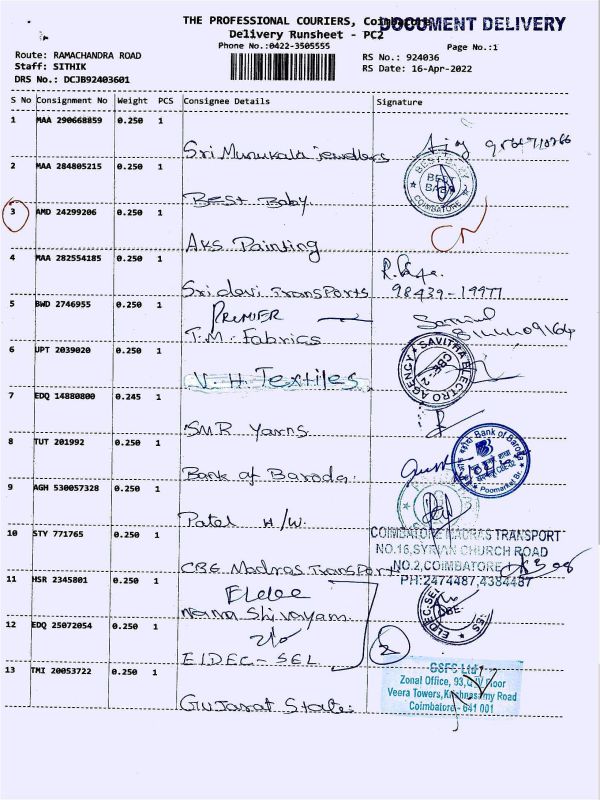 THE PROFESSIONAL COURIERS, Coimbatore
DOCUMENT DELIVERY
Delivery Runsheet - PC2
Phone No.:0422-3505555
Page No.:1
Route: RAMACHANDRA ROAD
RS No.: 924036
Staff: SITHIK
RS Date: 16-Apr-2022
DRS No.: DCJB92403601
S No Consignment No Weight PCS Consignee Details Signature
1 MAA 290668859 0.250 1
Sri Murukala jewellers
2 MAA 284805215 0.250 1
BEST BABY
COIMBATORE
Best Baby
3 AMD 24299206 0.250 1
AKS Painting
4 MAA 282554185 0.250 1
Sri devi Transports 98439-19971
5 BWD 2746955 0.250 1
PREMIER
T.M. Fabrics
6 UPT 2039020 0.250 1
SAVITRA ELECTRO AGENCY
CBE-2
V.H. Textiles
7 EDQ 14880800 0.245 1
SMR Yarns
8 TUT 201992 0.250 1
Bank of Baroda
Poomarket Br.
Bank of Baroda
9 AGH 530057328 0.250 1
Patel H/W
10 STY 771765 0.250 1
COIMBATORE MADRAS TRANSPORT
NO.16, SYRIAN CHURCH ROAD
NO.2, COIMBATORE
CBE Madras Transport
PH:2474487,4384487
11 HSR 2345801 0.250 1
Eldee
Nama Shivayam
12 EDQ 25072054 0.250 1
2
ELDEC-SEL
13 TMI 20053722 0.250 1
GSFS Ltd
Zonal Office, 93, Floor
Veera Towers, Krishnasamy Road
Coimbatore - 641 001
Gujarat State